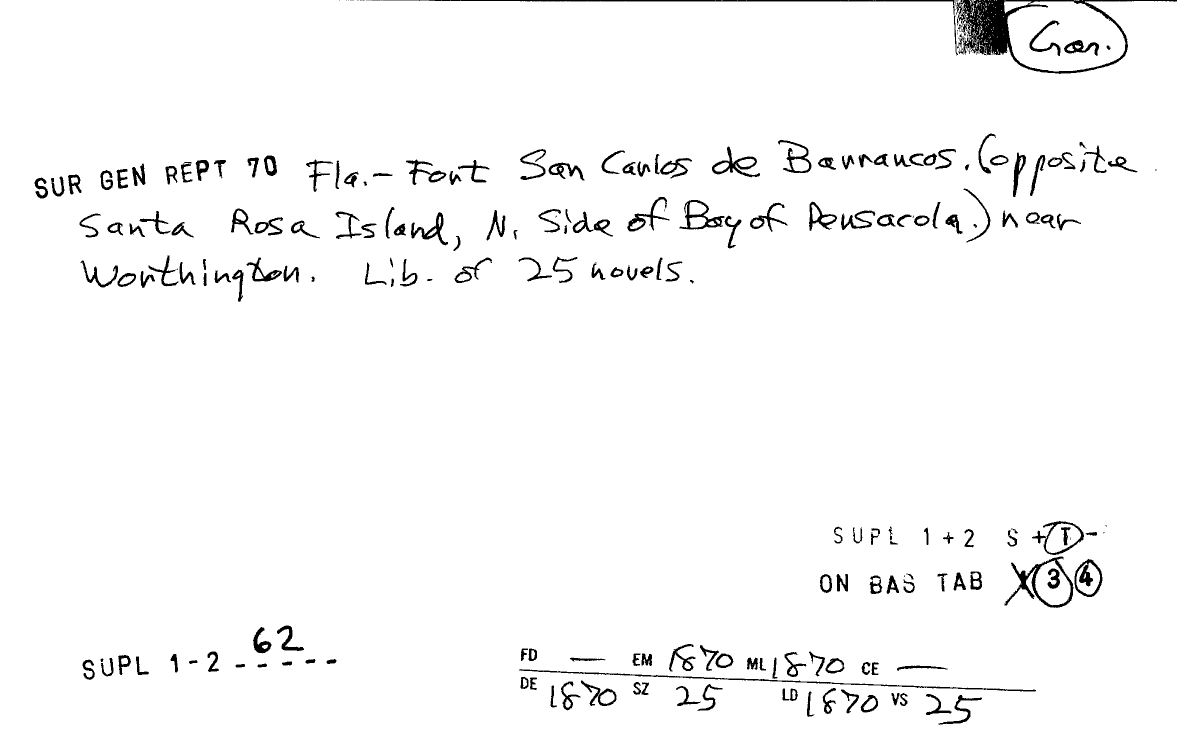 Gar.
SUR GEN REPT 70 Fla.- Fort San Carlos de Barrancos. (opposite
Santa Rosa Island, N. Side of Bay of Pensacola.) near
Worthington. Lib. of 25 novels.
SUPL 1+2 S +T-
ON BAS TAB 3 4
SUPL 1-2 62
FD — EM 1870 ML 1870 CE —
DE 1870 SZ 25 LD 1870 VS 25